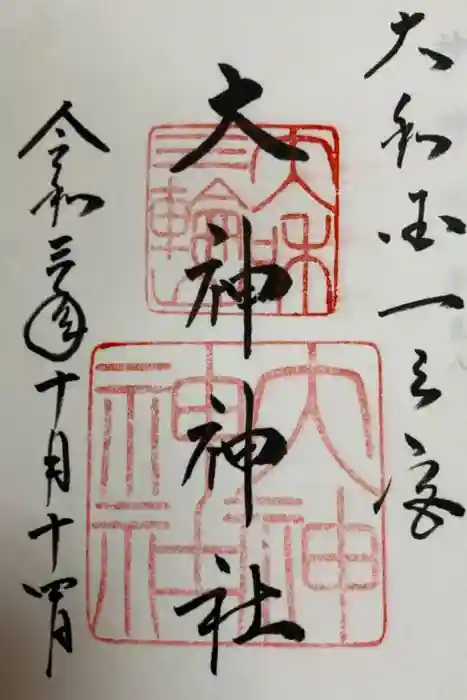 大和国一之宮
大神神社
令和三年十月十四日
大和
三輪
大神
神社